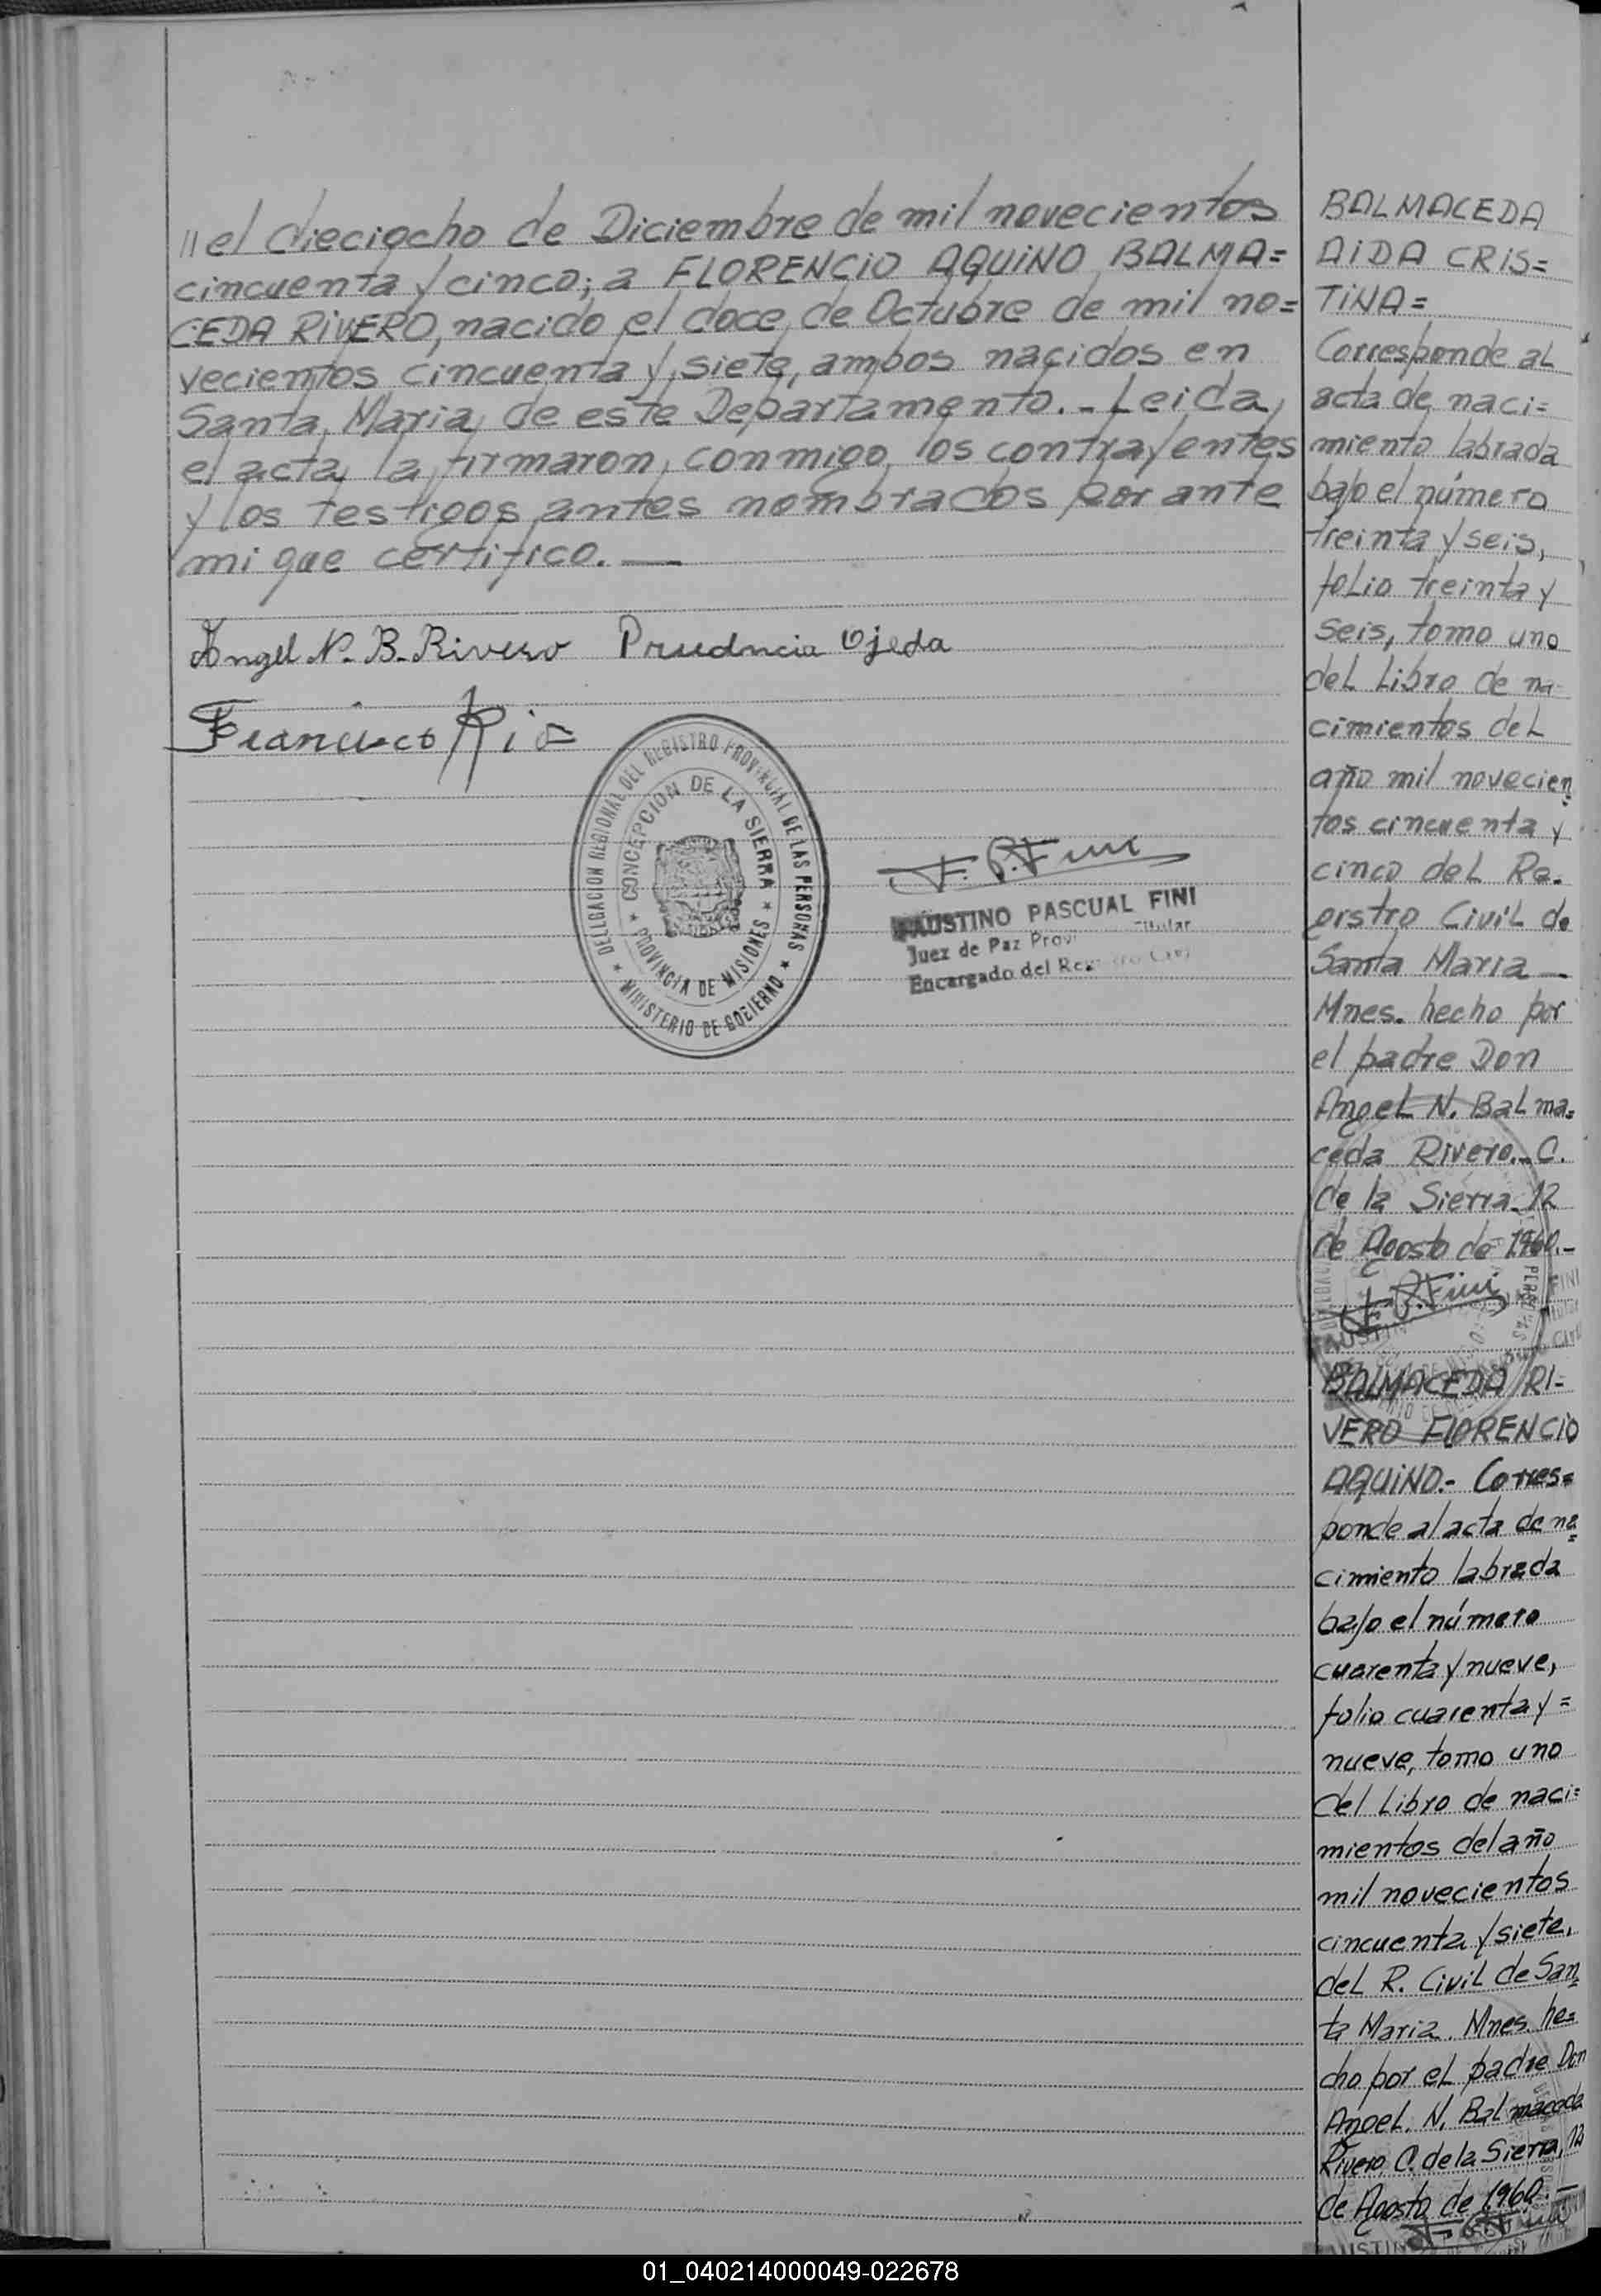 "el dieciocho de Diciembre de mil novecientos
cincuenta y cinco; a FLORENCIO AQUINO BALMA=
CEDA RIVERO, nacido el doce de Octubre de mil no=
vecientos cincuenta y siete, ambos nacidos en
Santa Maria, de este Departamento.- Leida,
el acta, la firmaron, conmigo, los contrayentes
y los testigos antes nombrados por ante
mi que certifico. —
Angel N. B. Rivero Prudncia Ojeda
Francisco
DELEGACION REGIONAL DEL REGISTRO PROVINCIAL DE LAS PERSONAS
CONCEPCION DE LA SIERRA
PROVINCIA DE MISIONES
MINISTERIO DE GOBIERNO
F. P. Fini
FAUSTINO PASCUAL FINI
Juez de Paz Titular
Encargado del
BALMACEDA
AIDA CRIS=
TINA=
Corresponde al
acta de naci=
miento labrada
bajo el número
treinta y seis,
folio treinta y
seis, tomo uno
del Libro de na
cimientos del
año mil novecien
tos cincuenta y
cinco del Re-
gistro Civil de
Santa Maria —
Mnes. hecho por
el padre Don
Angel N. Balma=
ceda Rivero.- C.
de la Sierra. 12
de Agosto de 1960.-
F. P. Fini
BALMACEDA RI-
VERO FLORENCIO
AQUINO.- Corres=
ponde al acta de na
cimiento labrada
bajo el número
cuarenta y nueve,
folio cuarenta y =
nueve, tomo uno
del Libro de naci=
mientos del año
mil novecientos
cincuenta y siete,
del R. Civil de San
ta Maria. Mnes. he=
cho por el padre Don
Angel. N. Balmaceda
Rivero. C. de la Sierra, 12
de Agosto de 1960.-
F. P. Fini
01_040214000049-022678